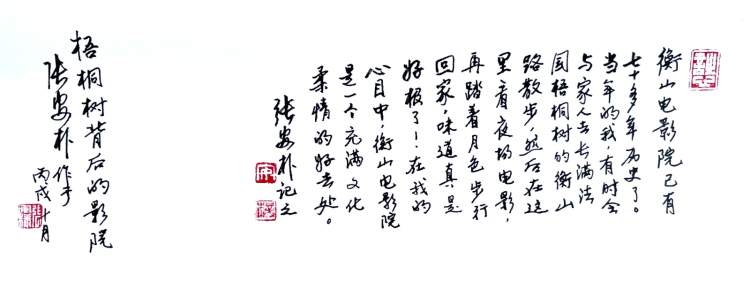 衡山电影院已有
七十多年历史了。
当年的我，有时会
与家人去长满法
国梧桐树的衡山
路散步，然后在这
里看夜场电影，
再踏着月色步行
回家，味道真是
好极了！在我的
心目中，衡山电影院
是一个充满文化
柔情的好去处。
张安朴记之
梧桐树背后的影院
张安朴作于
丙戌十月